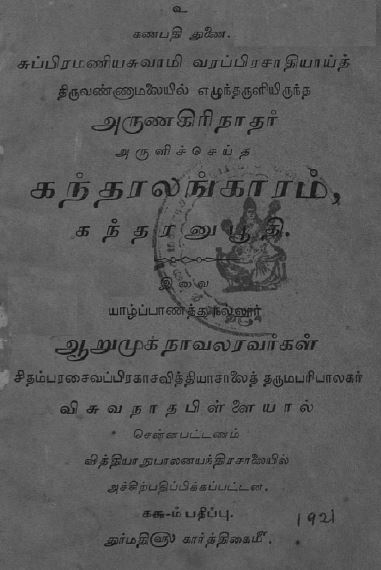 உ
கணபதி துணை.
சுப்பிரமணியசுவாமி வரப்பிரசாதியாய்த்
திருவண்ணாமலையில் எழுந்தருளியிருந்த
அருணகிரிநாதர்
அருளிச்செய்த
கந்தரலங்காரம்,
கந்தரனுபூதி.
இவை
யாழ்ப்பாணத்துநல்லூர்
ஆறுமுகநாவலரவர்கள்
சிதம்பரசைவப்பிரகாசவித்தியாசாலைத் தருமபரிபாலகர்
விசுவநாதபிள்ளையால்
சென்னபட்டணம்
வித்தியாநுபாலனயந்திரசாலையில்
அச்சிற்பதிப்பிக்கப்பட்டன.
ககூ-ம் பதிப்பு.
1921
துர்மதி௵ கார்த்திகை௴.